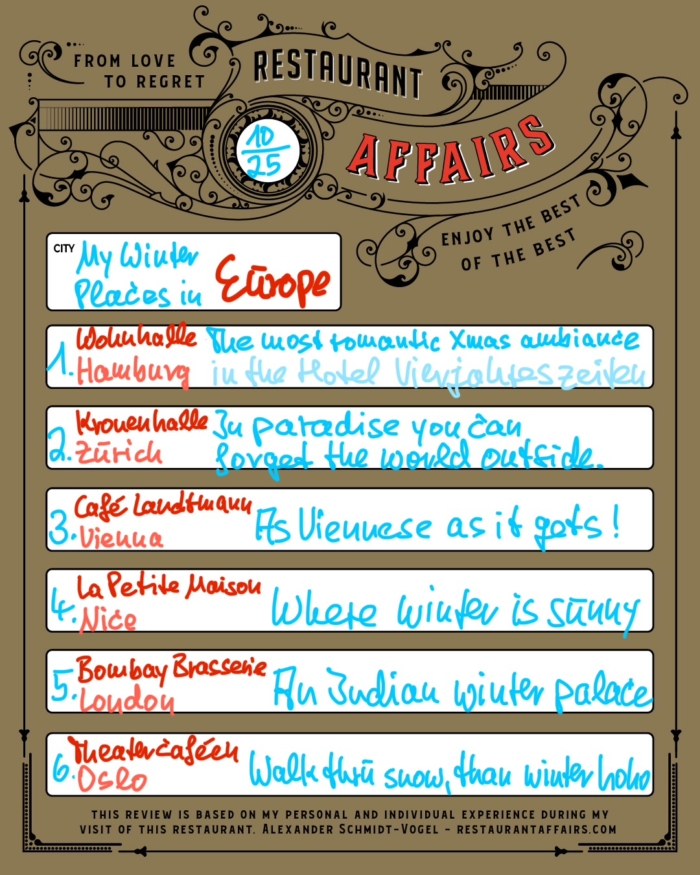 FROM LOVE
TO REGRET
RESTAURANT
AFFAIRS
10
25
ENJOY THE BEST
OF THE BEST
CITY My Winter
Places in Europe
1. Wohnhalle The most romantic Xmas ambiance
Hamburg in the Hotel Vierjahreszeiten
2. Kronenhalle In paradise you can
Zürich forget the world outside.
3. Café Landtmann As Viennese as it gets!
Vienna
4. La Petite Maison Where winter is sunny
Nice
5. Bombay Brasserie An Indian winter palace
London
6. Theatercaféen Walk thru snow, than winter hoho
Oslo
THIS REVIEW IS BASED ON MY PERSONAL AND INDIVIDUAL EXPERIENCE DURING MY
VISIT OF THIS RESTAURANT. ALEXANDER SCHMIDT-VOGEL – RESTAURANTAFFAIRS.COM